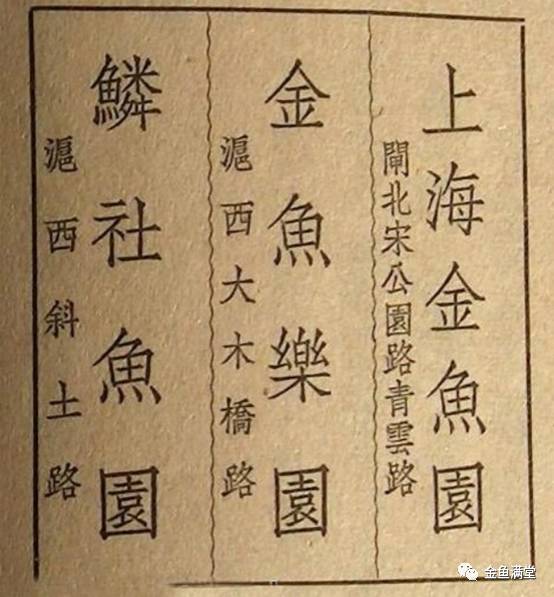 上海金魚園
閘北宋公園路青雲路
金魚樂園
滬西大木橋路
鱗社魚園
滬西斜土路
金鱼满堂